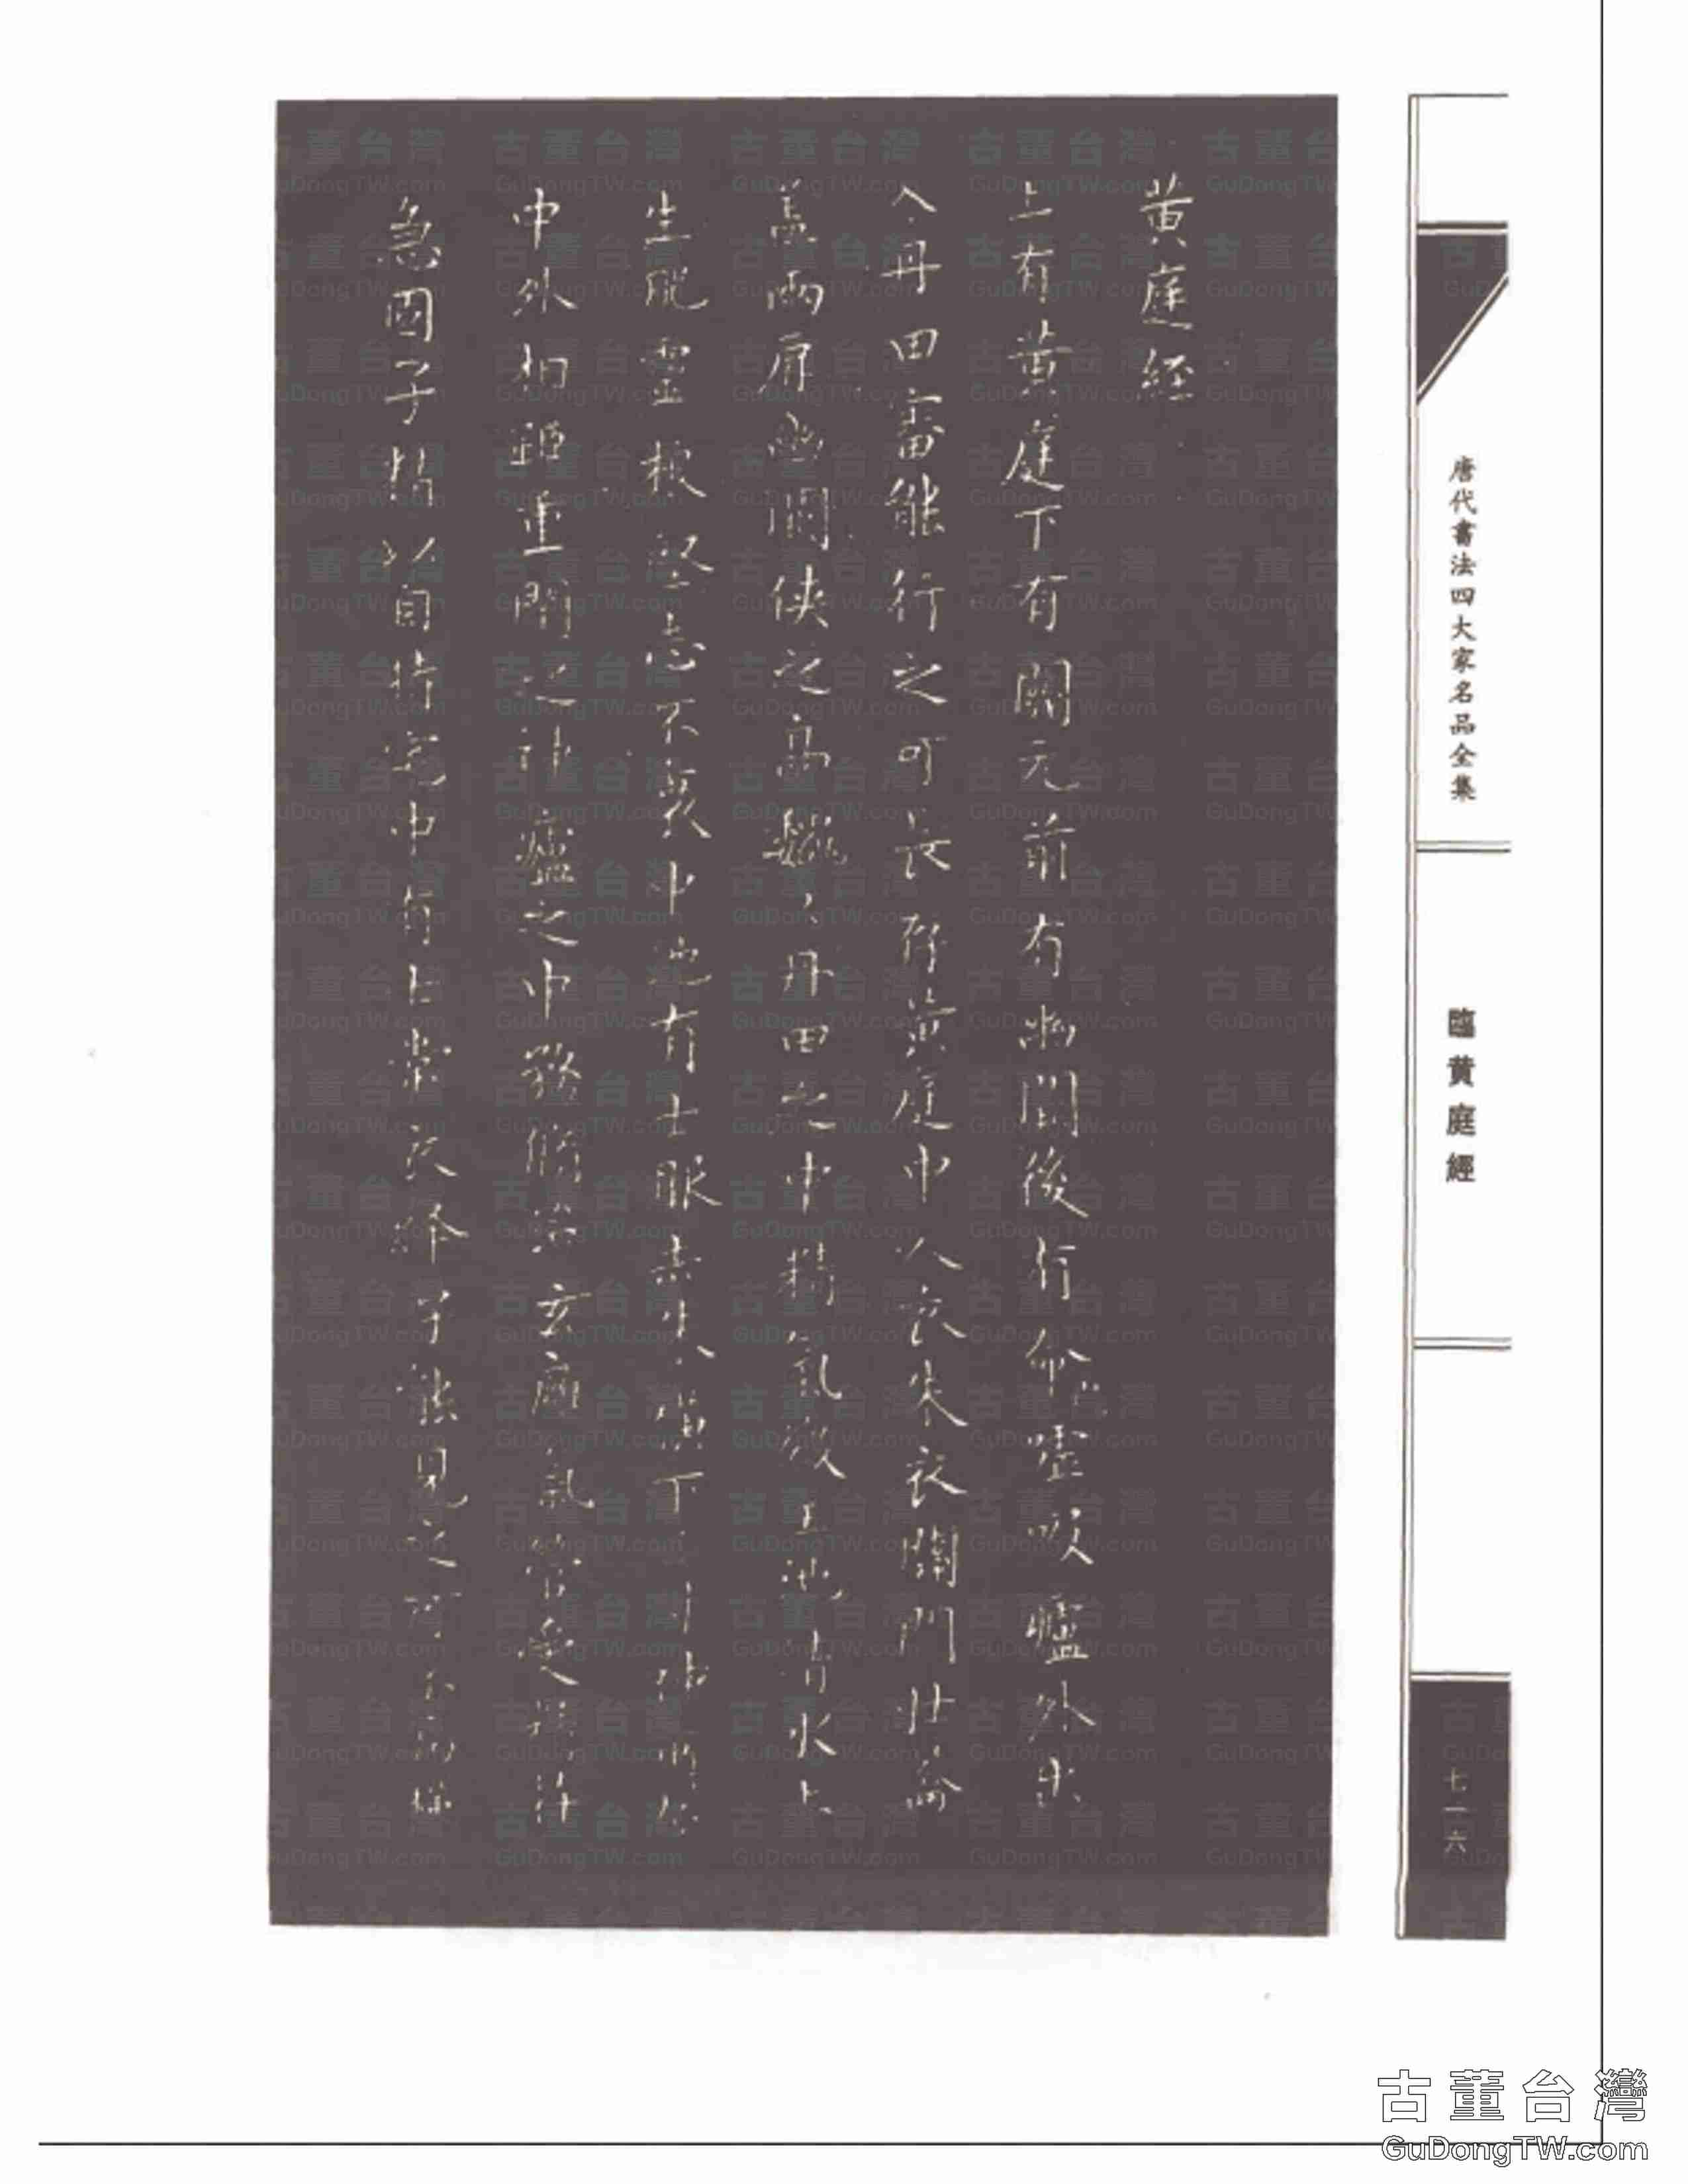 黄庭經
上有黄庭下有關元前有幽闕後有命嘘吸廬外出
入丹田審能行之可長存黄庭中人衣朱衣關門壯籥
盖兩扉幽闕侠之高巍丶丹田之中精氣微玉池清水上
生肥靈根堅志不衰中池有士服赤朱横下三寸神所居
中外相距重閉之神廬之中務脩治玄廱氣管受精符
急固子精以自持宅中有士常衣絳子能見之可不病
唐代書法四大家名品全集
臨黄庭經
七一六
古董台灣
GuDongTW.com